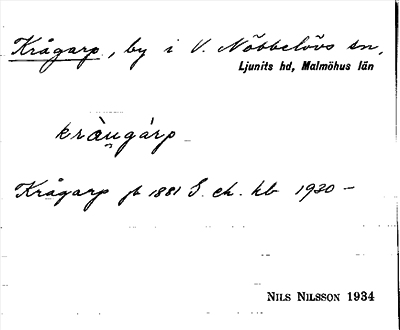 Krågarp, by i V. Nöbbelövs sn,
Ljunits hd, Malmöhus län
kràu̯gárp
Krågarp jb 1881 S. ch. kb 1920 –
NILS NILSSON 1934